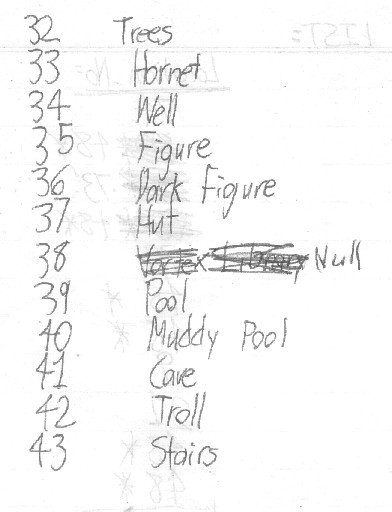 32 Trees
33 Hornet
34 Well
35 Figure
36 Dark Figure
37 Hut
38 Vortex Library Null
39 Pool
40 Muddy Pool
41 Cave
42 Troll
43 Stairs